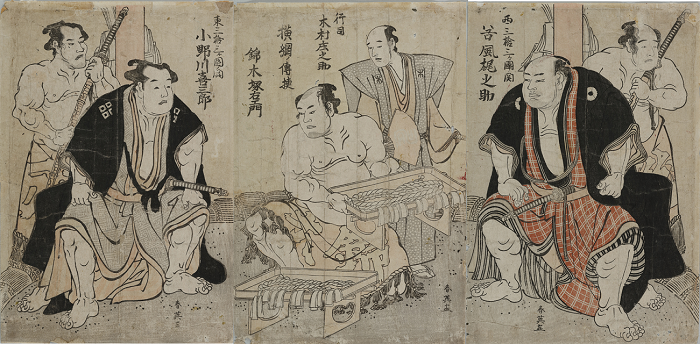 西三拾三ヶ國関
谷風梶之助
春英画
行司
木村庄之助
横綱傳授
錦木塚右衛門
春英画
東三拾三ヶ國関
小野川喜三郎
春英画